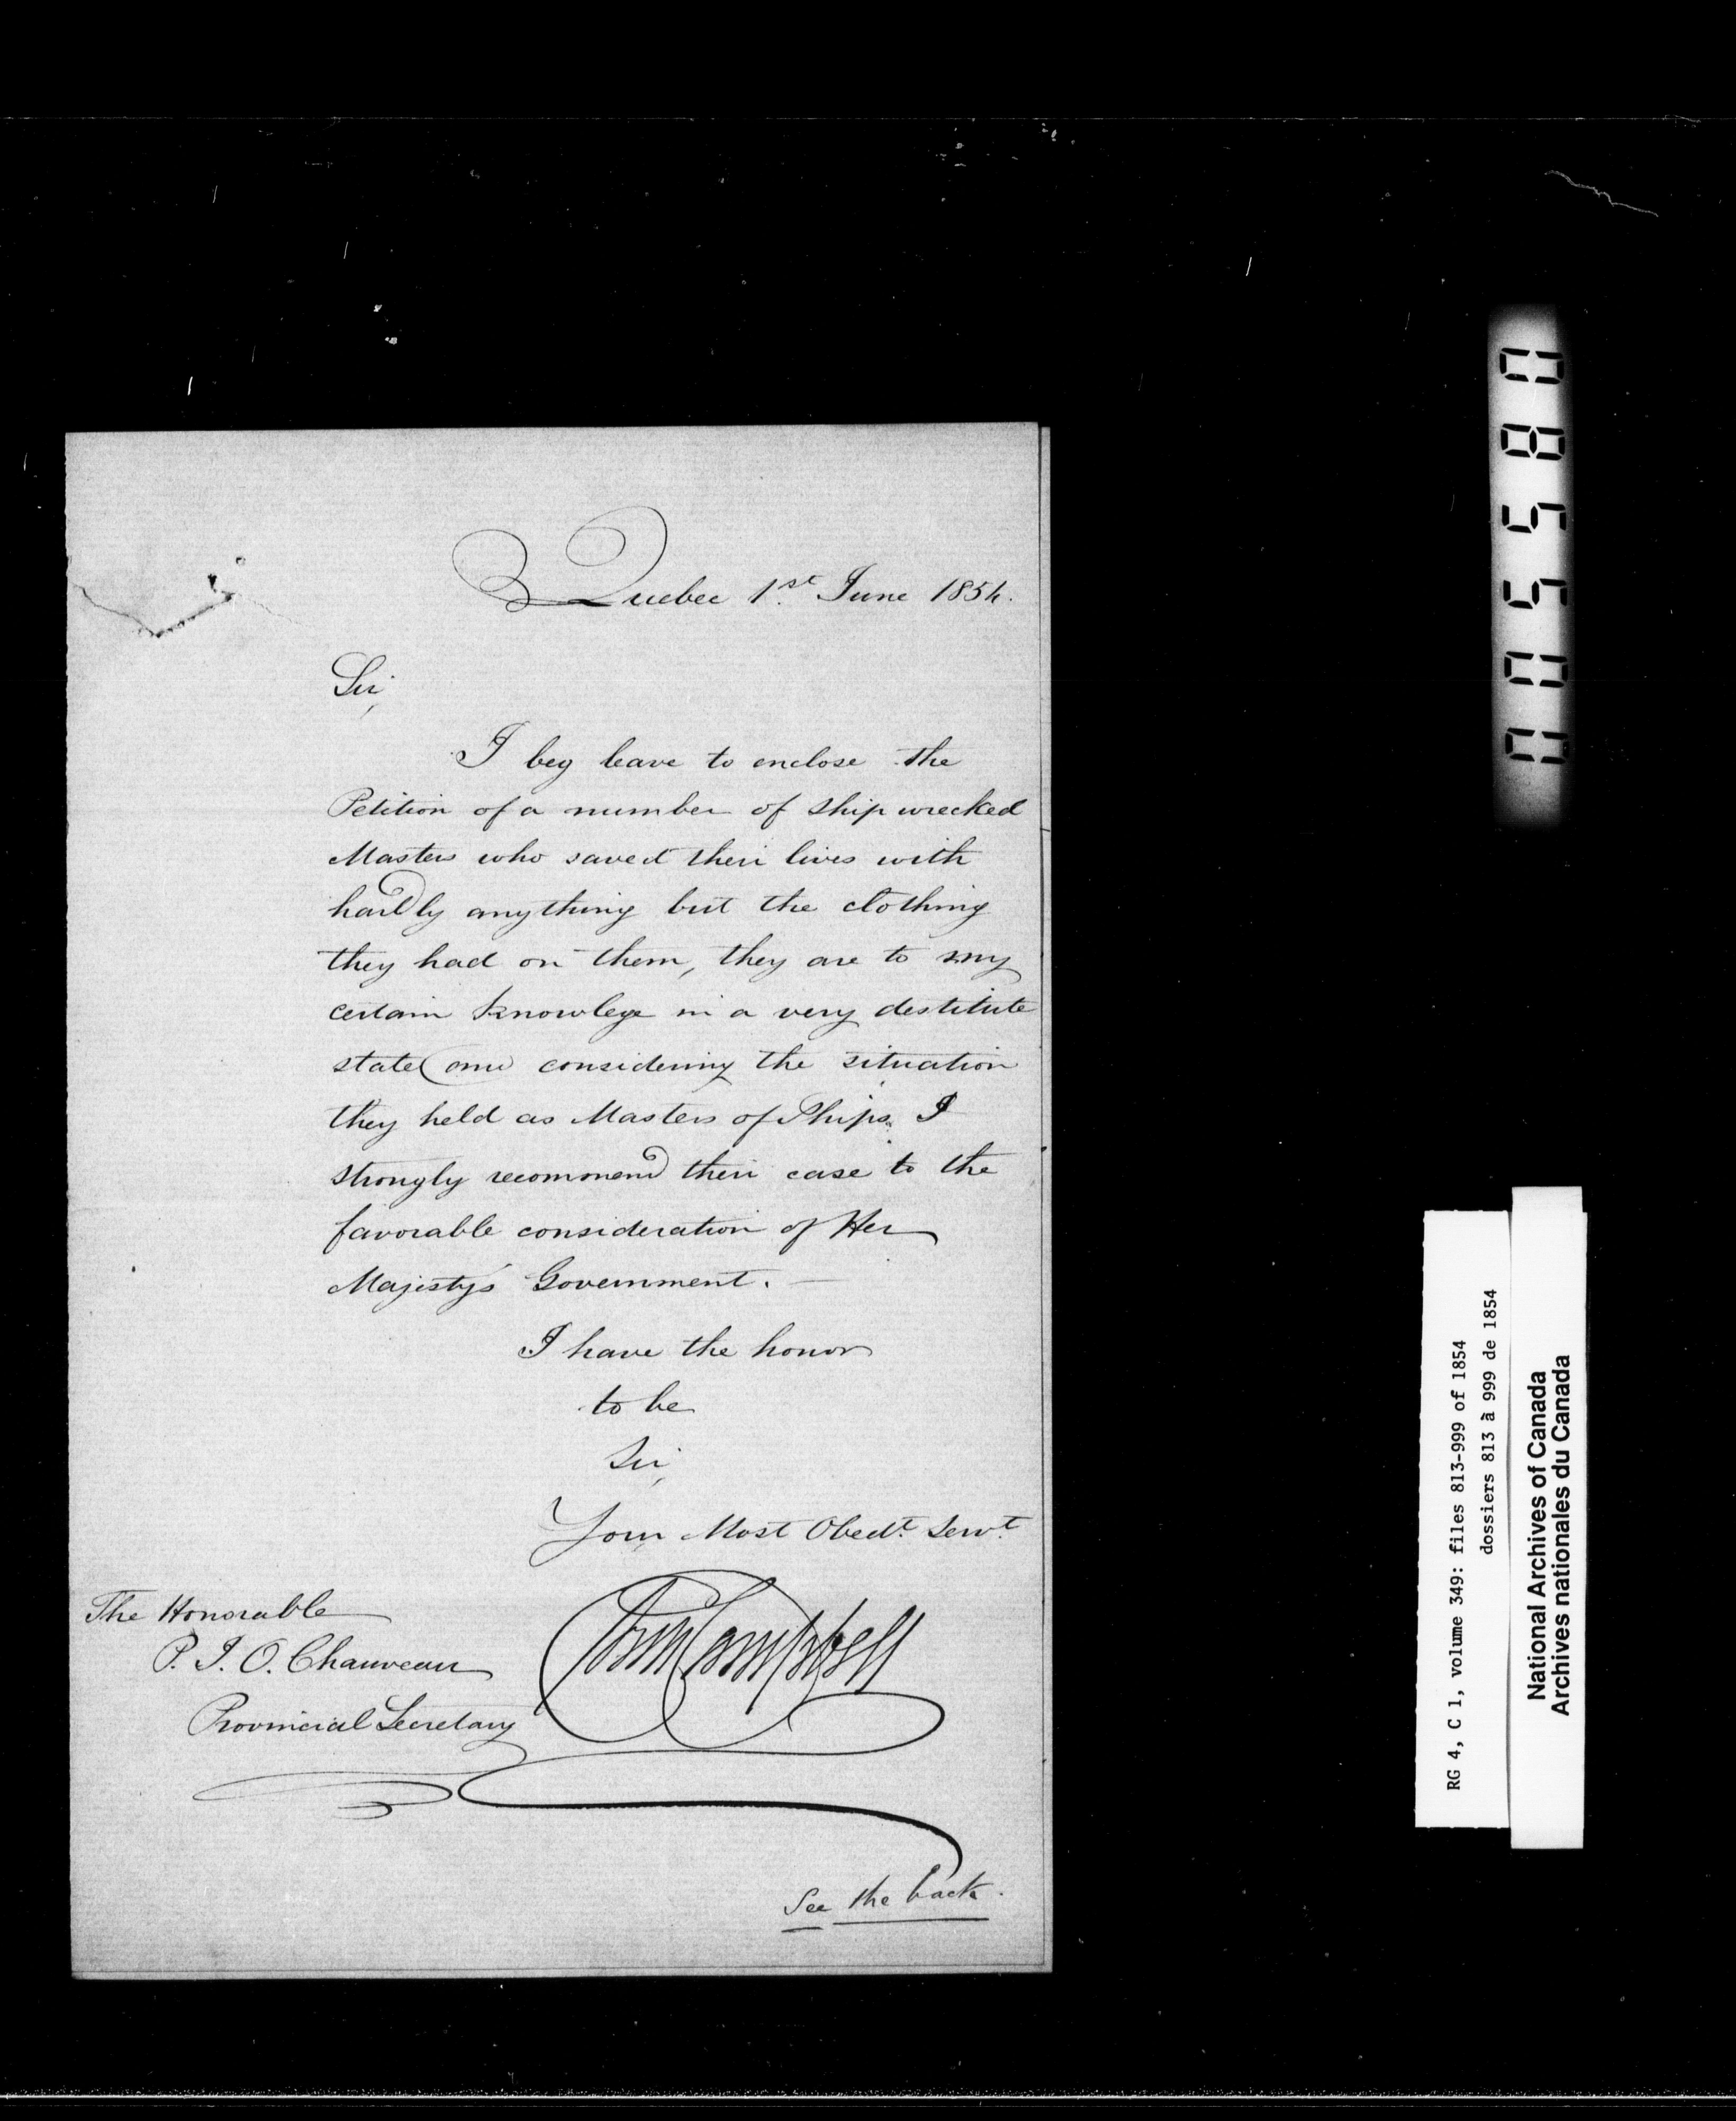 Quebec 1.st June 1854.
Sir,
I beg leave to enclose the
Petition of a number of Ship wrecked
Masters who saved their lives with
hardly anything but the clothing
they had on them, they are to my
certain knowlege in a very destitute
state and considering the situation
they held as Masters of Ships. I
strongly recommend their case to the
favorable consideration of Her
Majesty's Government. —
I have the honor
to be
Sir,
Your Most Obedt. Servt.
The Honorable
P. J. O. Chauveau
Provincial Secretary
Campbell
See the back.
005580
RG 4, C 1, volume 349: files 813-999 of 1854
dossiers 813 à 999 de 1854
National Archives of Canada
Archives nationales du Canada